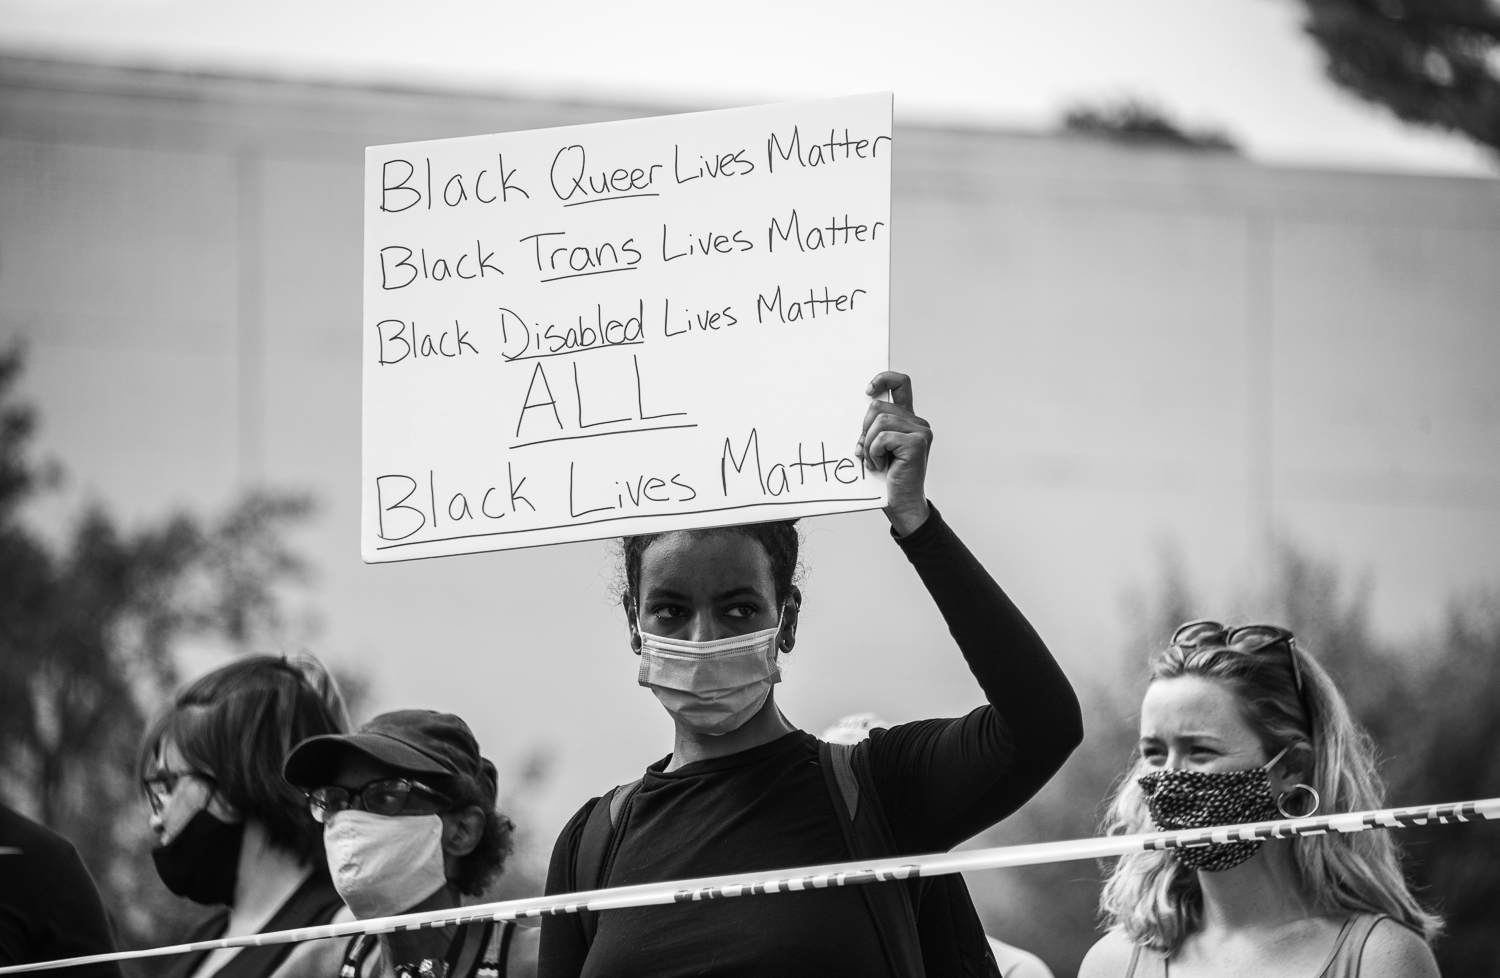 Black Queer Lives Matter
Black Trans Lives Matter
Black Disabled Lives Matter
ALL
Black Lives Matter